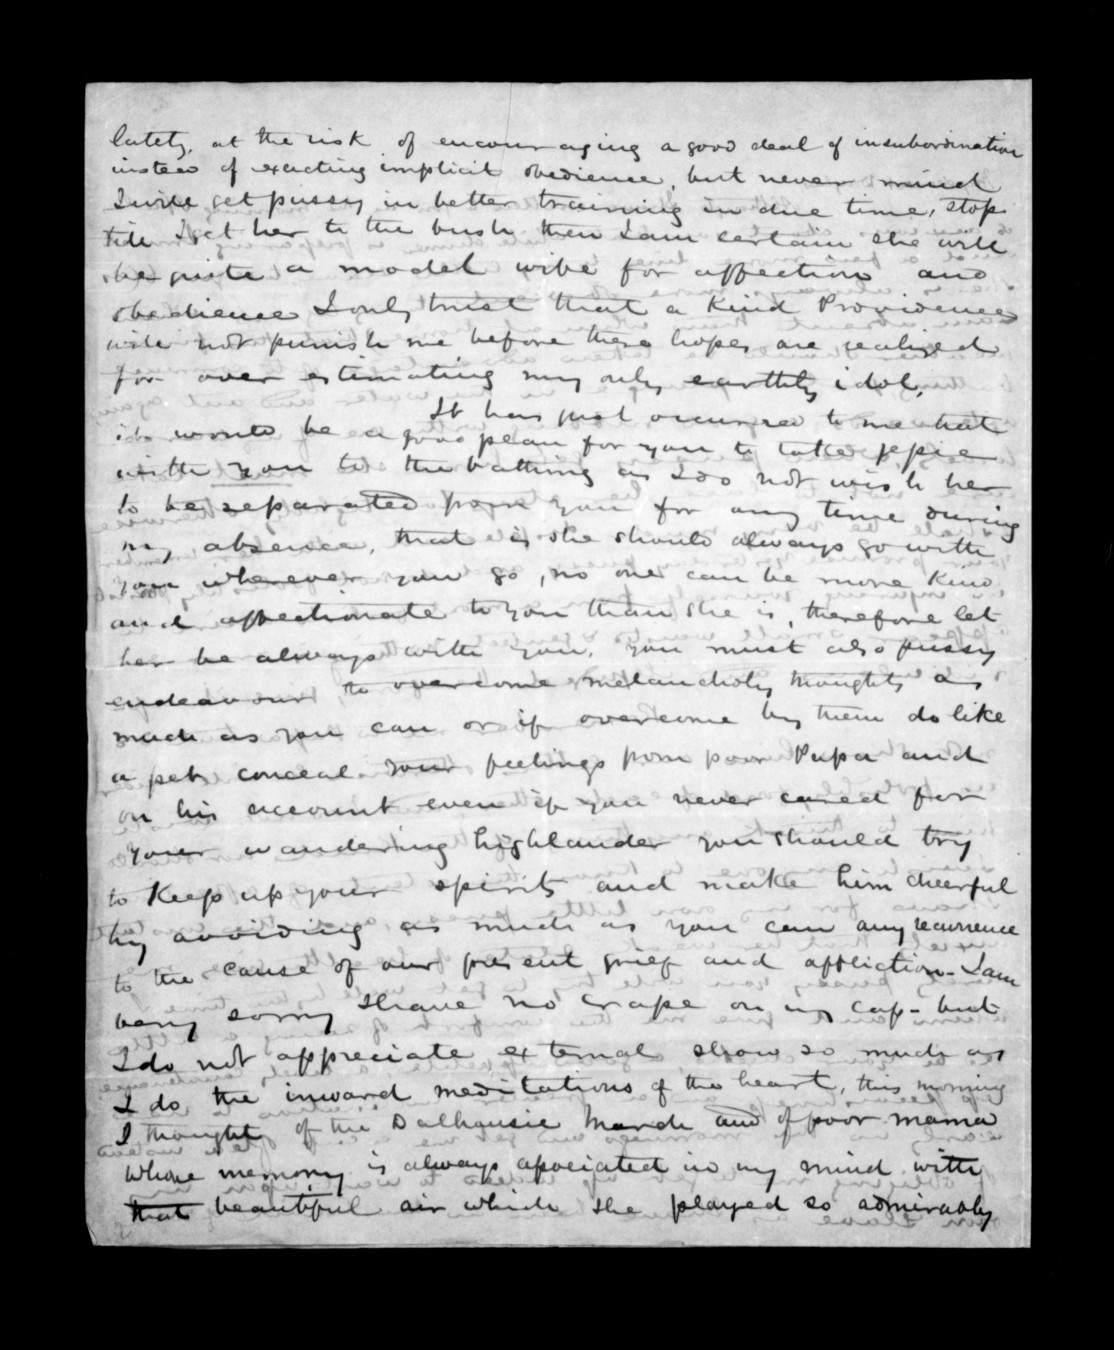 lately, at the risk of encouraging a good deal of insubordination
instead of exacting implicit obedience, but never mind
I will get pussy in better training in due time, stop
till I get her to the bush then I am certain she will
be quite a model wife for affection and
obedience I only trust that a Kind Providence
will not punish me before these hopes are realized
for over estimating my only earthly idol.
It has just occurred to me that
it would be a good plan for you to take Jessie
with you to the bathing as I do not wish her
to be separated from you for any time during
my absence, that is she should always go with
you wherever you go, no one can be more Kind
and affectionate to you than she is, therefore let
her be always with you. You must also pussy
endeavour to overcome melancholy thoughts as
much as you can or if overcome by them do like
a pet conceal your feelings from poor Papa and
on his account even if you never cared for
your wandering highlander you should try
to Keep up your spirits and make him cheerful
by avoiding as much as you can any recurrence
to the cause of our present grief and affliction - I am
very sorry I have no crape on my cap - but
I do not appreciate external show so much as
I do the inward meditations of the heart, this morning
I thought of the Dalhousie March and of poor mama
whose memory is always associated in my mind with
that beautiful air which she played so admirably